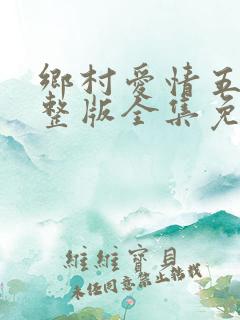 鄉村愛情五
整版全集免
維維寶貝
未经同意禁止转载